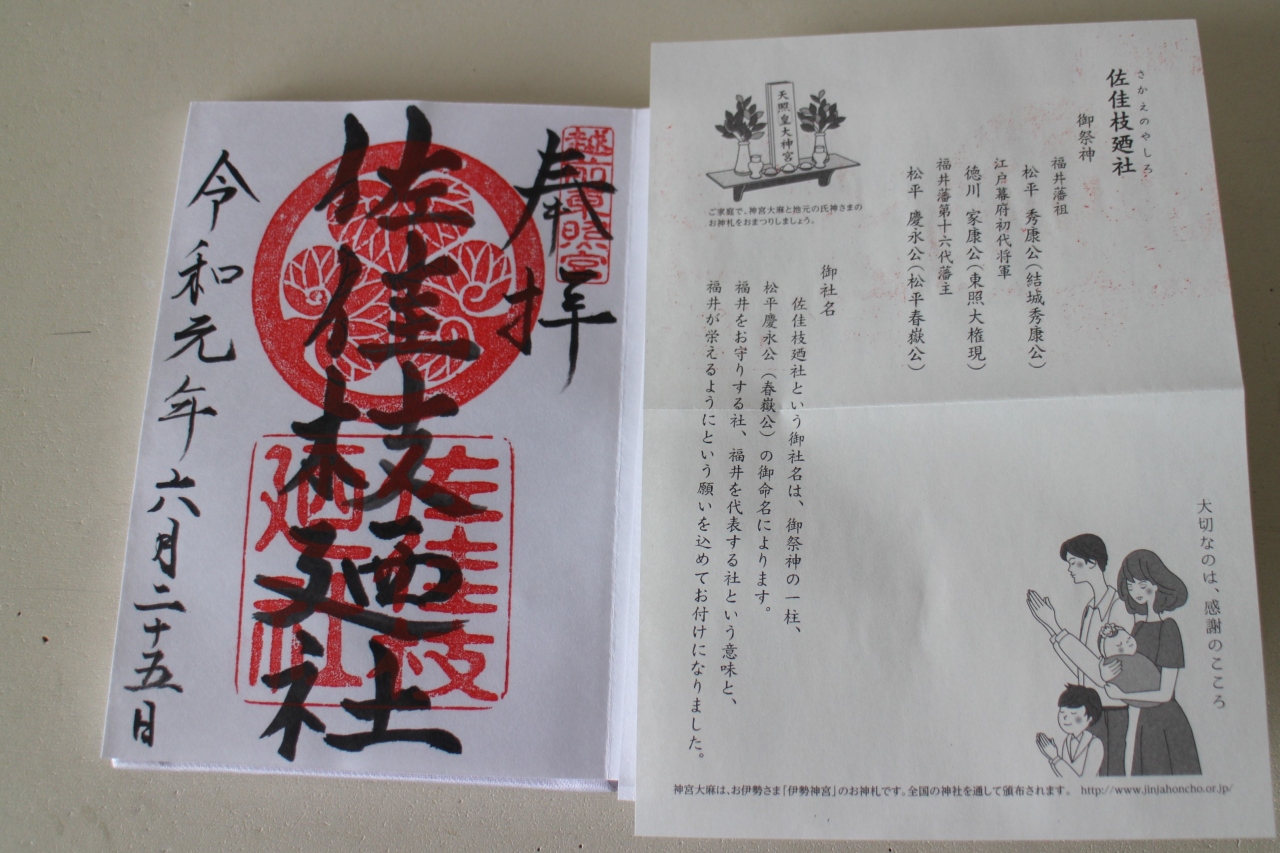 奉拝
越前東照宮
佐佳枝廼社
佐佳枝
廼社
令和元年六月二十五日
さかえのやしろ
佐佳枝廼社
御祭神
福井藩祖
松平 秀康公(結城秀康公)
江戸幕府初代将軍
徳川 家康公(東照大権現)
福井藩第十六代藩主
松平 慶永公(松平春嶽公)
天照皇大神宮
ご家庭で、神宮大麻と地元の氏神さまの
お神札をおまつりしましょう。
御社名
佐佳枝廼社という御社名は、御祭神の一柱、
松平慶永公(春嶽公)の御命名によります。
福井をお守りする社、福井を代表する社という意味と、
福井が栄えるようにという願いを込めてお付けになりました。
大切なのは、感謝のこころ
神宮大麻は、お伊勢さま「伊勢神宮」のお神札です。全国の神社を通して頒布されます。 http://www.jinjahoncho.or.jp/